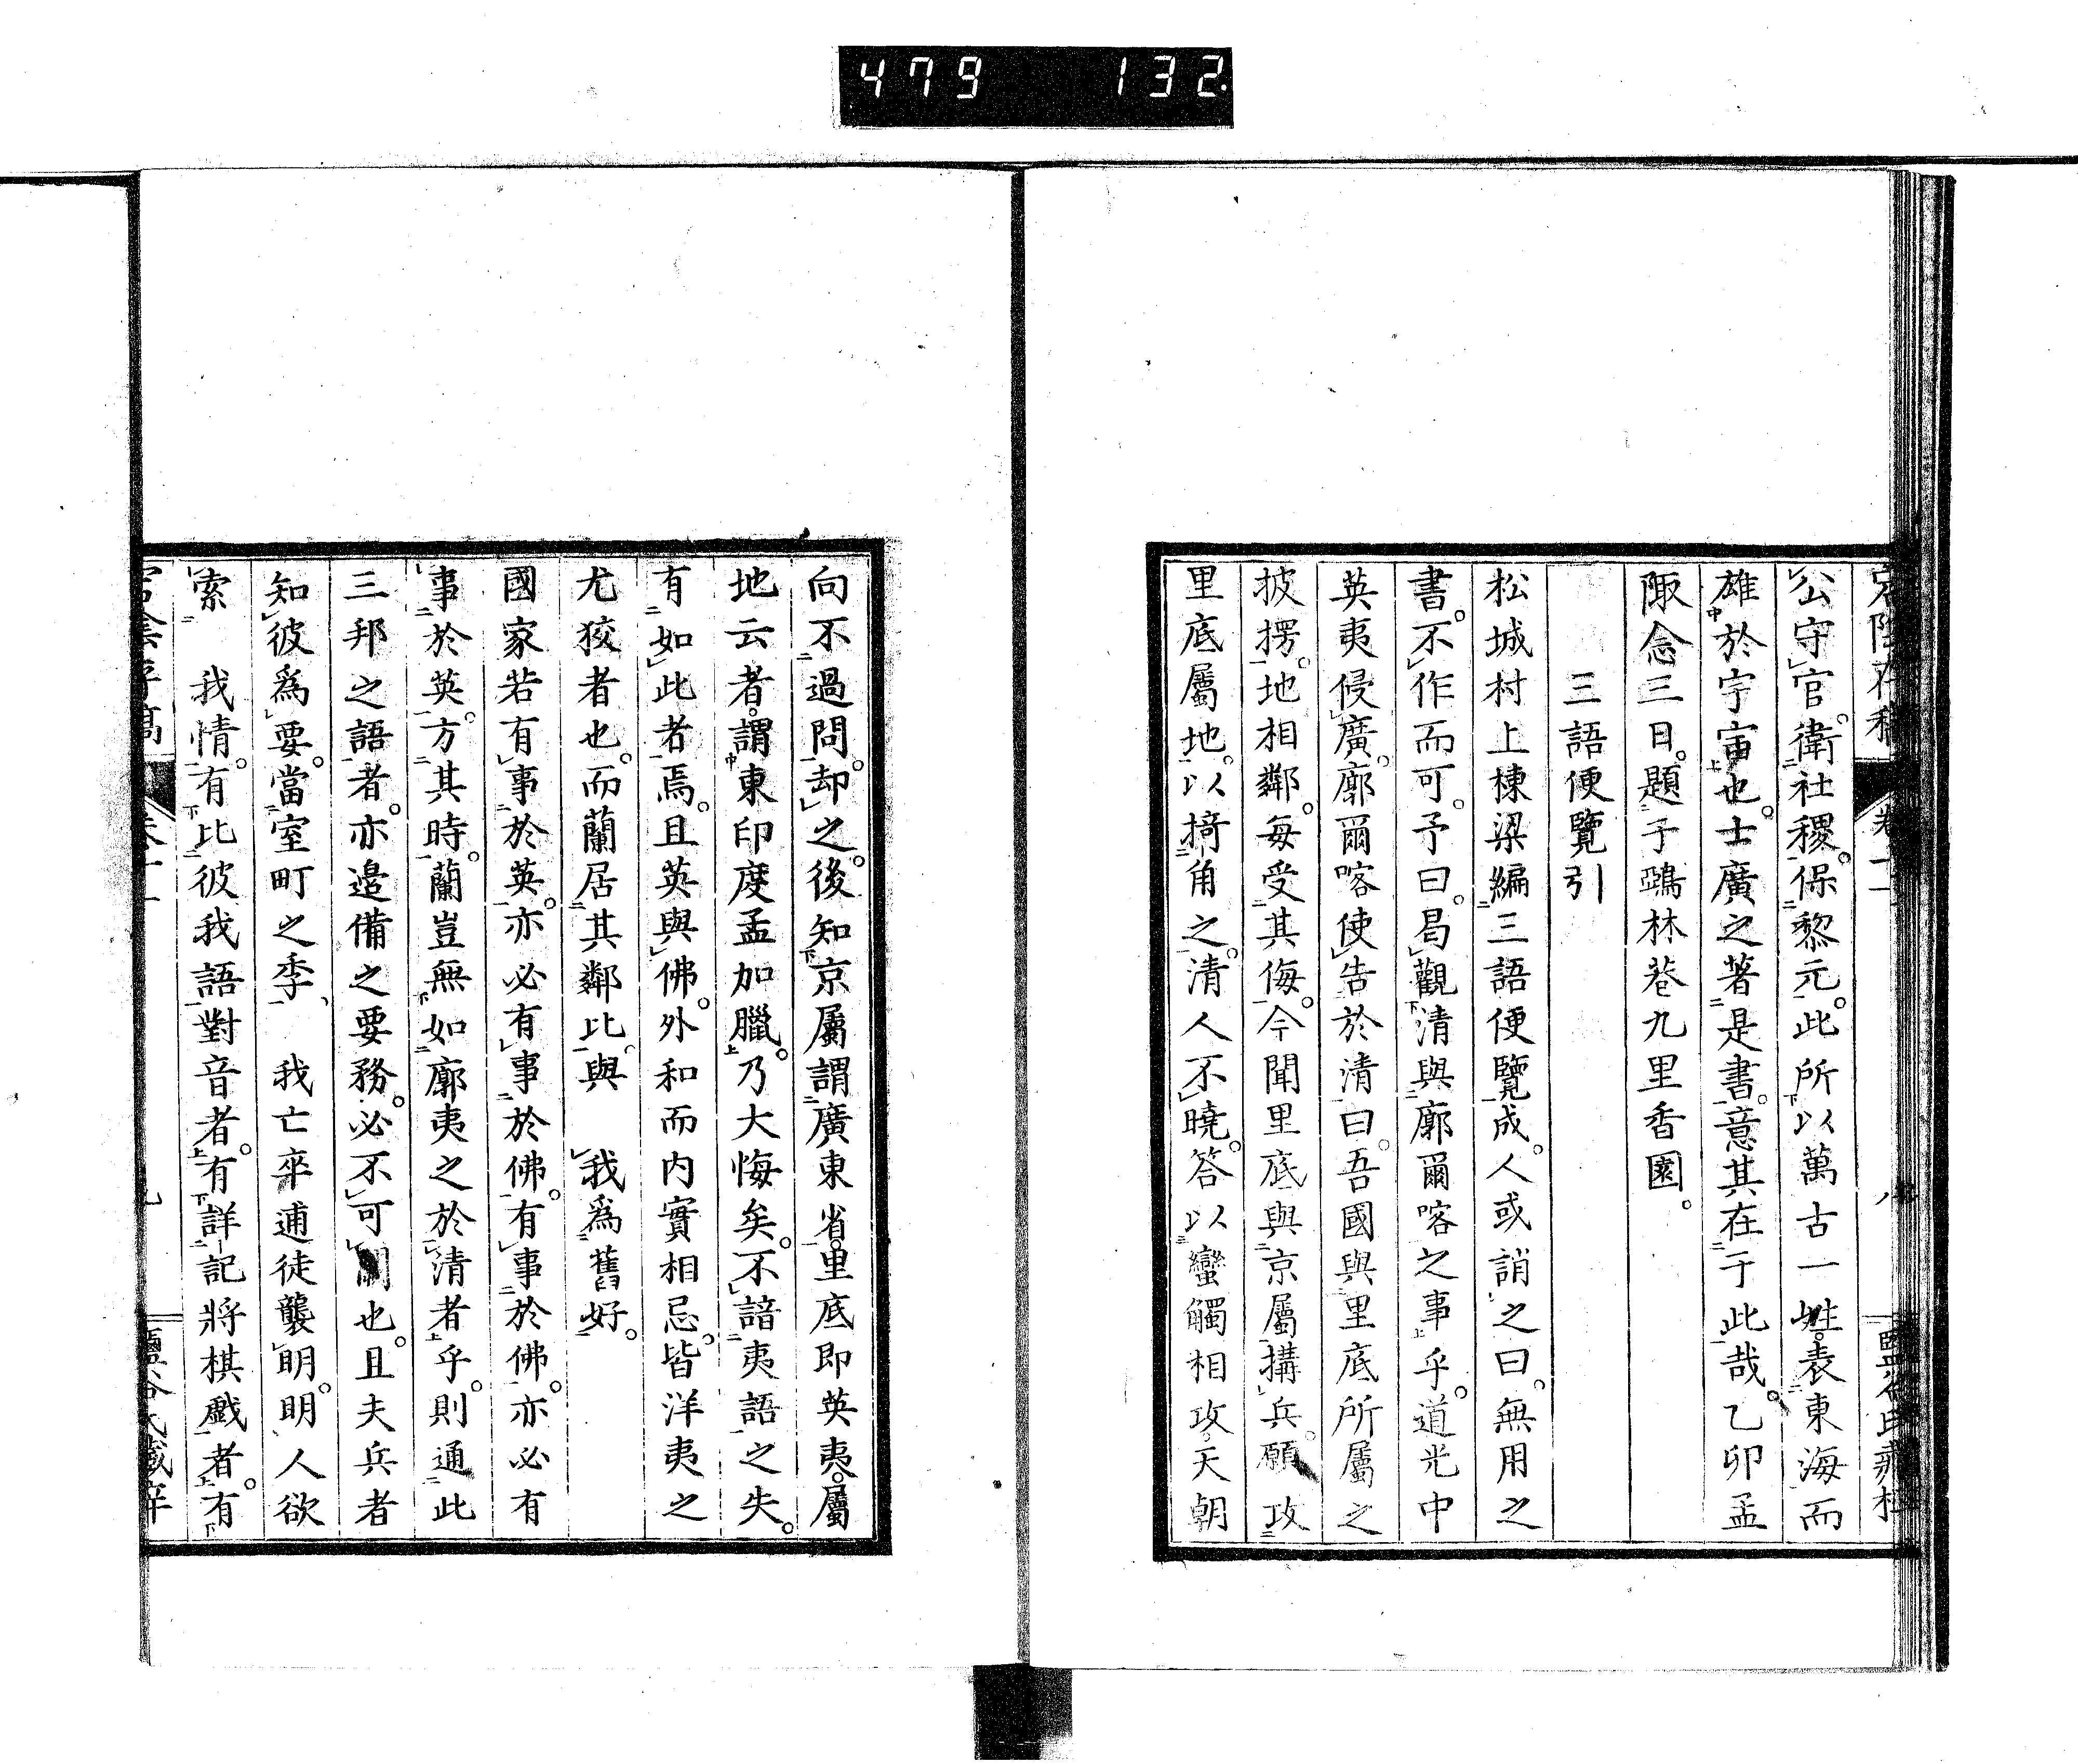 479 132
公守官。衛社稷。保黎元。此所以萬古一姓。表東海而
雄於宇宙也。士廣之著是書。意其在于此哉。乙卯孟
陬念三日。題于鵶林巷九里香園。
三語便覽引
松城村上棟梁編三語便覽成。人或誚之曰。無用之
書。不作而可。予曰。曷觀清與廓爾喀之事乎。道光中
英夷侵廣。廓爾喀使告於清曰。吾國與里底所屬之
披楞。地相鄰。每受其侮。今聞里底與京屬搆兵。願攻
里底屬地。以掎角之。清人不曉。答以蠻觸相攻。天朝
向不過問。却之。後知京屬謂廣東省。里底即英夷。屬
地云者。謂東印度孟加臘。乃大悔矣。不諳夷語之失。
有如此者焉。且英與佛。外和而内實相忌。皆洋夷之
尤狡者也。而蘭居其鄰比。與 我爲舊好。
國家若有事於英。亦必有事於佛。有事於佛。亦必有
事於英。方其時。蘭豈無如廓夷之於清者乎。則通此
三邦之語者。亦邉備之要務。必不可闕也。且夫兵者
知彼爲要。當室町之季、 我亡卒逋徒襲明。明人欲
索 我情。有比彼我語對音者。有詳記將棋戲者。有